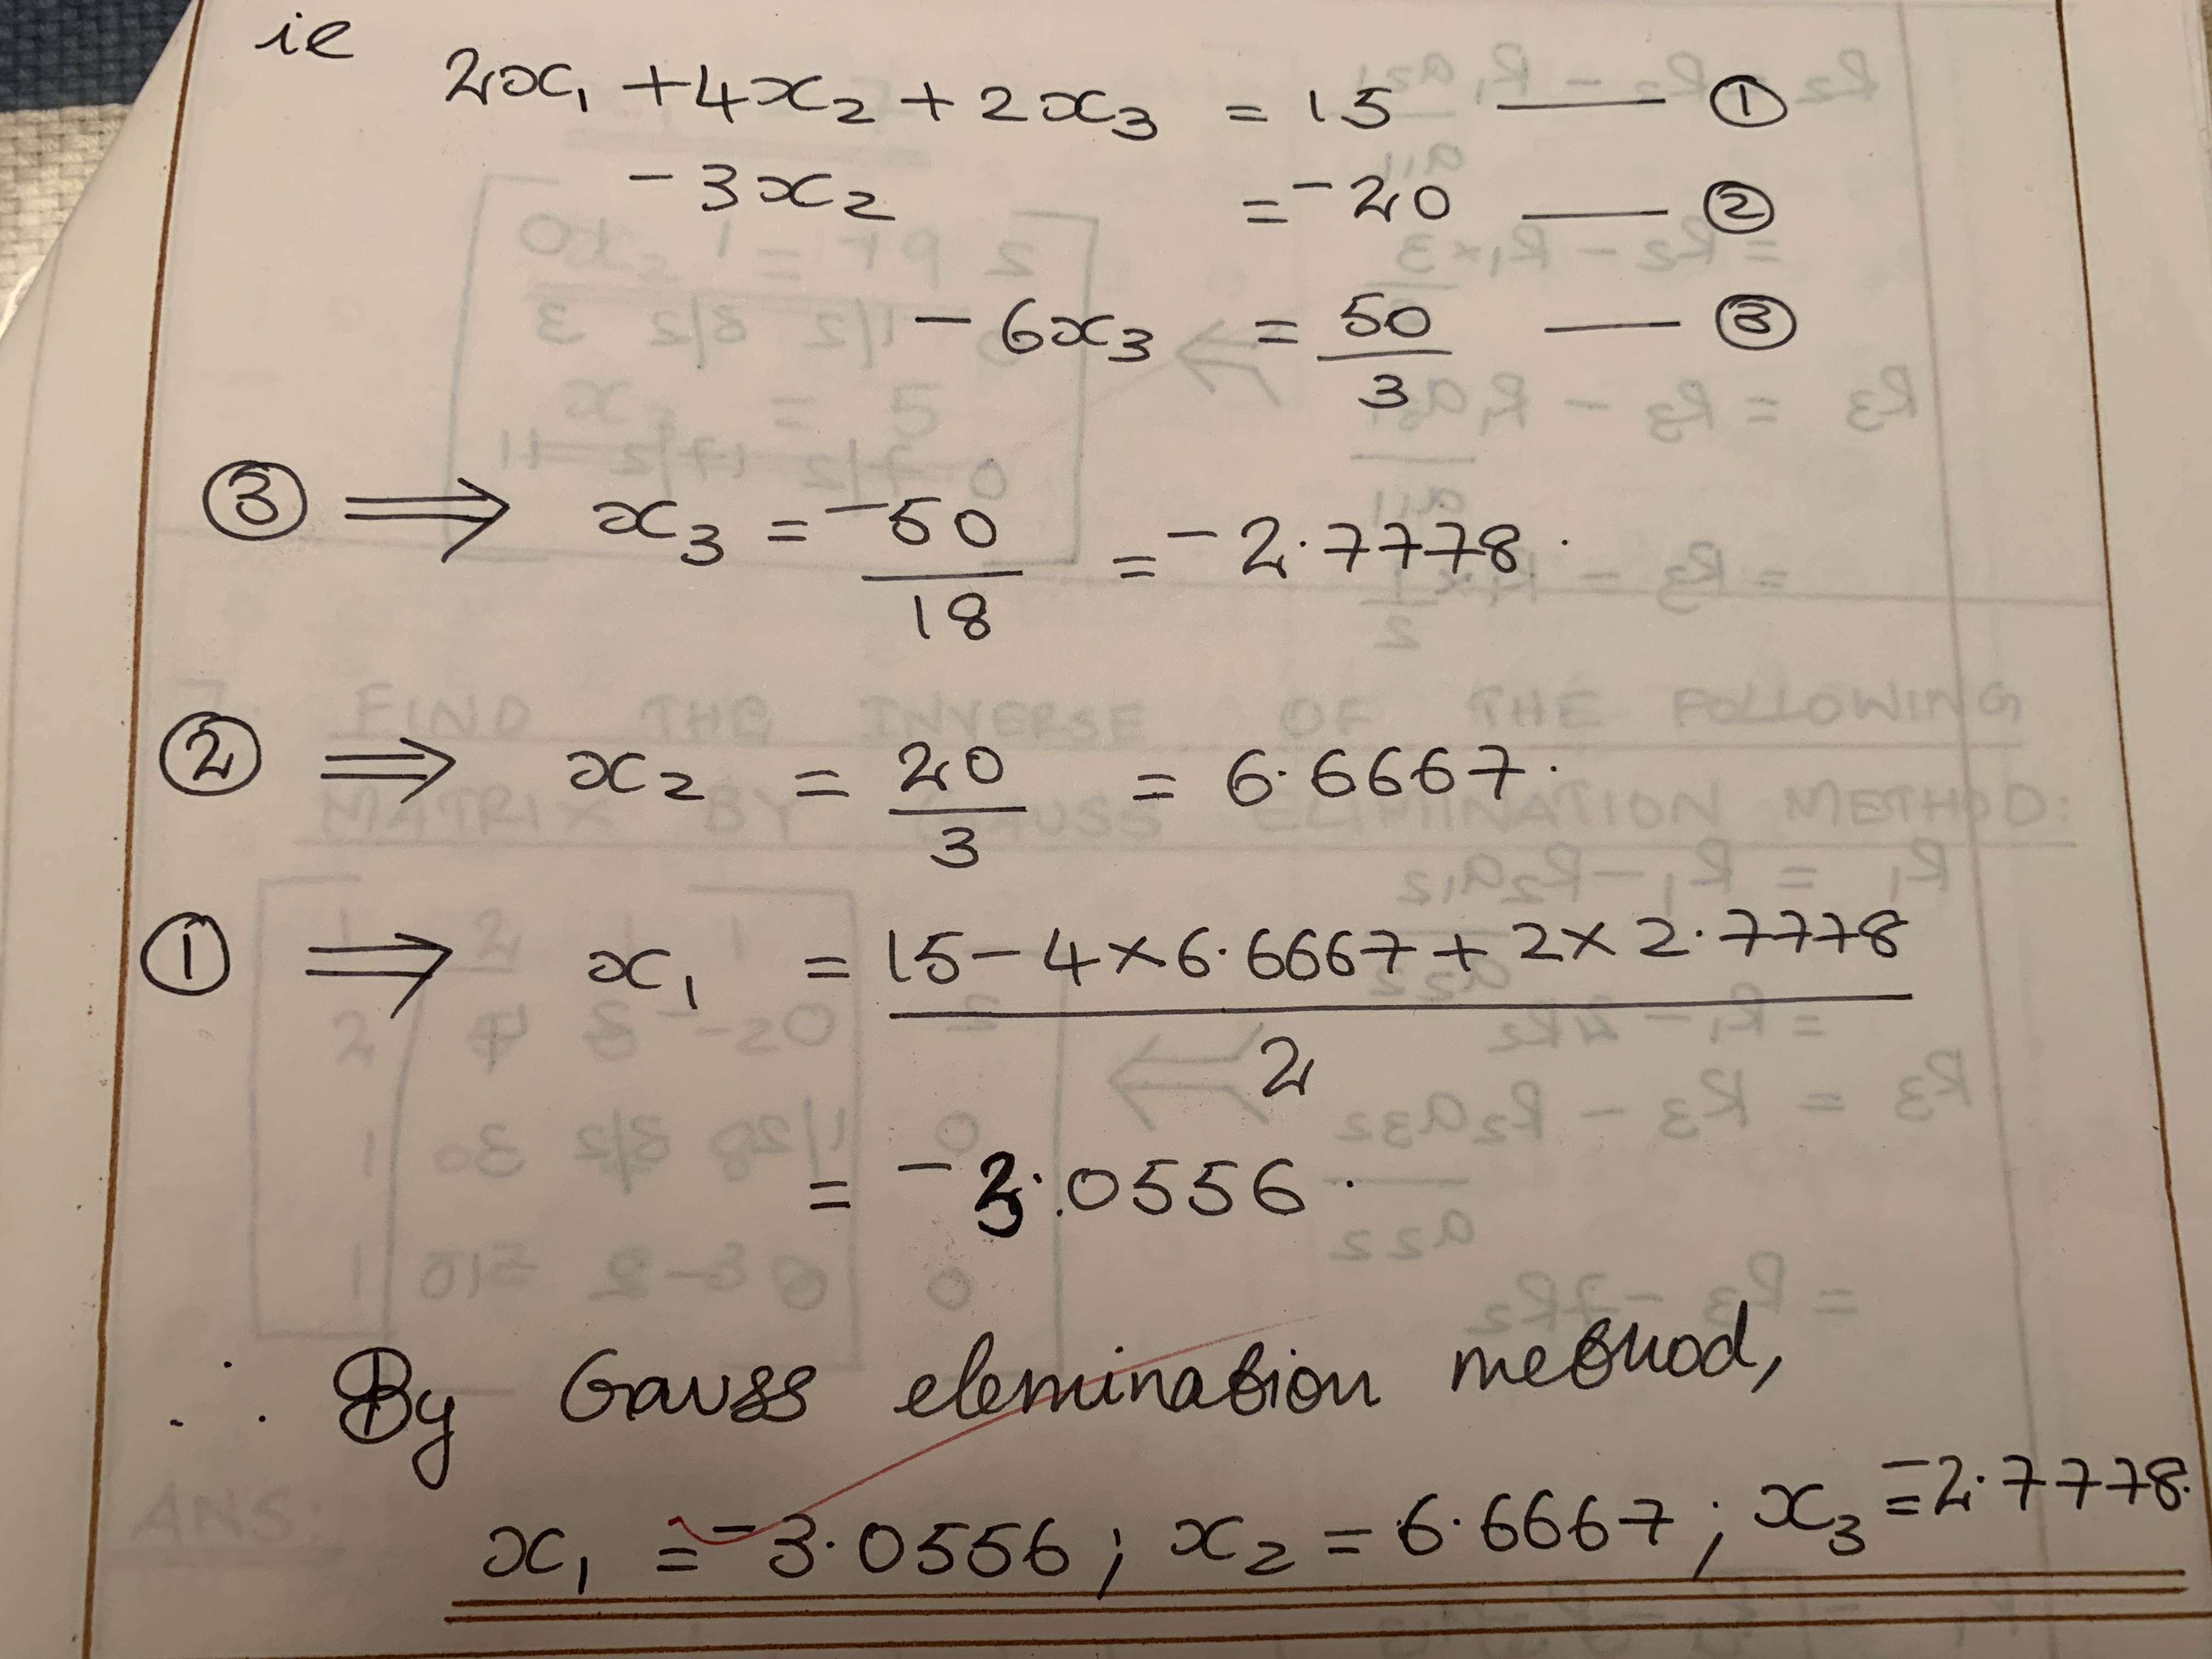 ie 2x₁ + 4x₂ + 2x₃ = 15 — ①
- 3x₂ = -20 — ②
- 6x₃ = 50/3 — ③
③ ⟹ x₃ = -50/18 = -2.7778.
② ⟹ x₂ = 20/3 = 6.6667.
① ⟹ x₁ = (15 - 4×6.6667 + 2×2.7778)/2
= -3.0556.
∴ By Gauss elemination method,
x₁ = -3.0556; x₂ = 6.6667; x₃ = -2.7778.